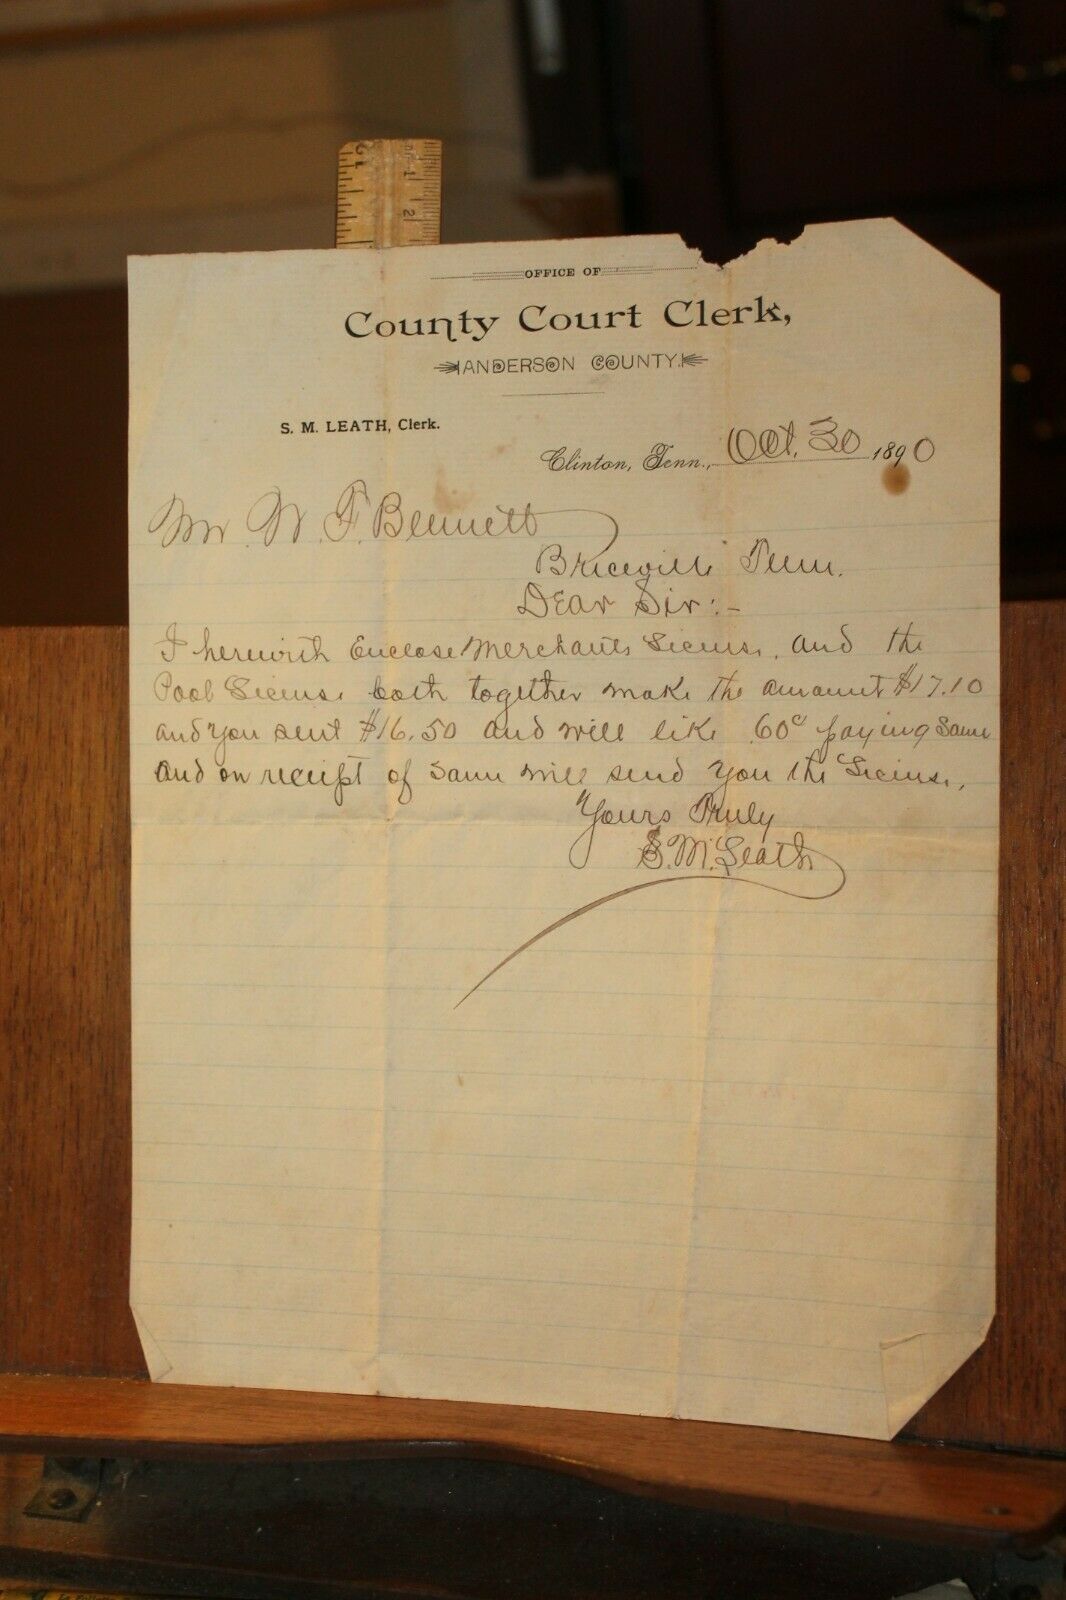 OFFICE OF
County Court Clerk,
ANDERSON COUNTY.
S. M. LEATH, Clerk.
Clinton, Tenn., Oct. 30 1890
Mr. W. F. Bennett
Briceville Tenn.
Dear Sir:-
I herewith Enclose Merchants License, and the
Pool License both together make the amount $17.10
and you sent $16.50 and will like 60c paying same
and on receipt of same will send you the License.
Yours Truly
S. M. Leath